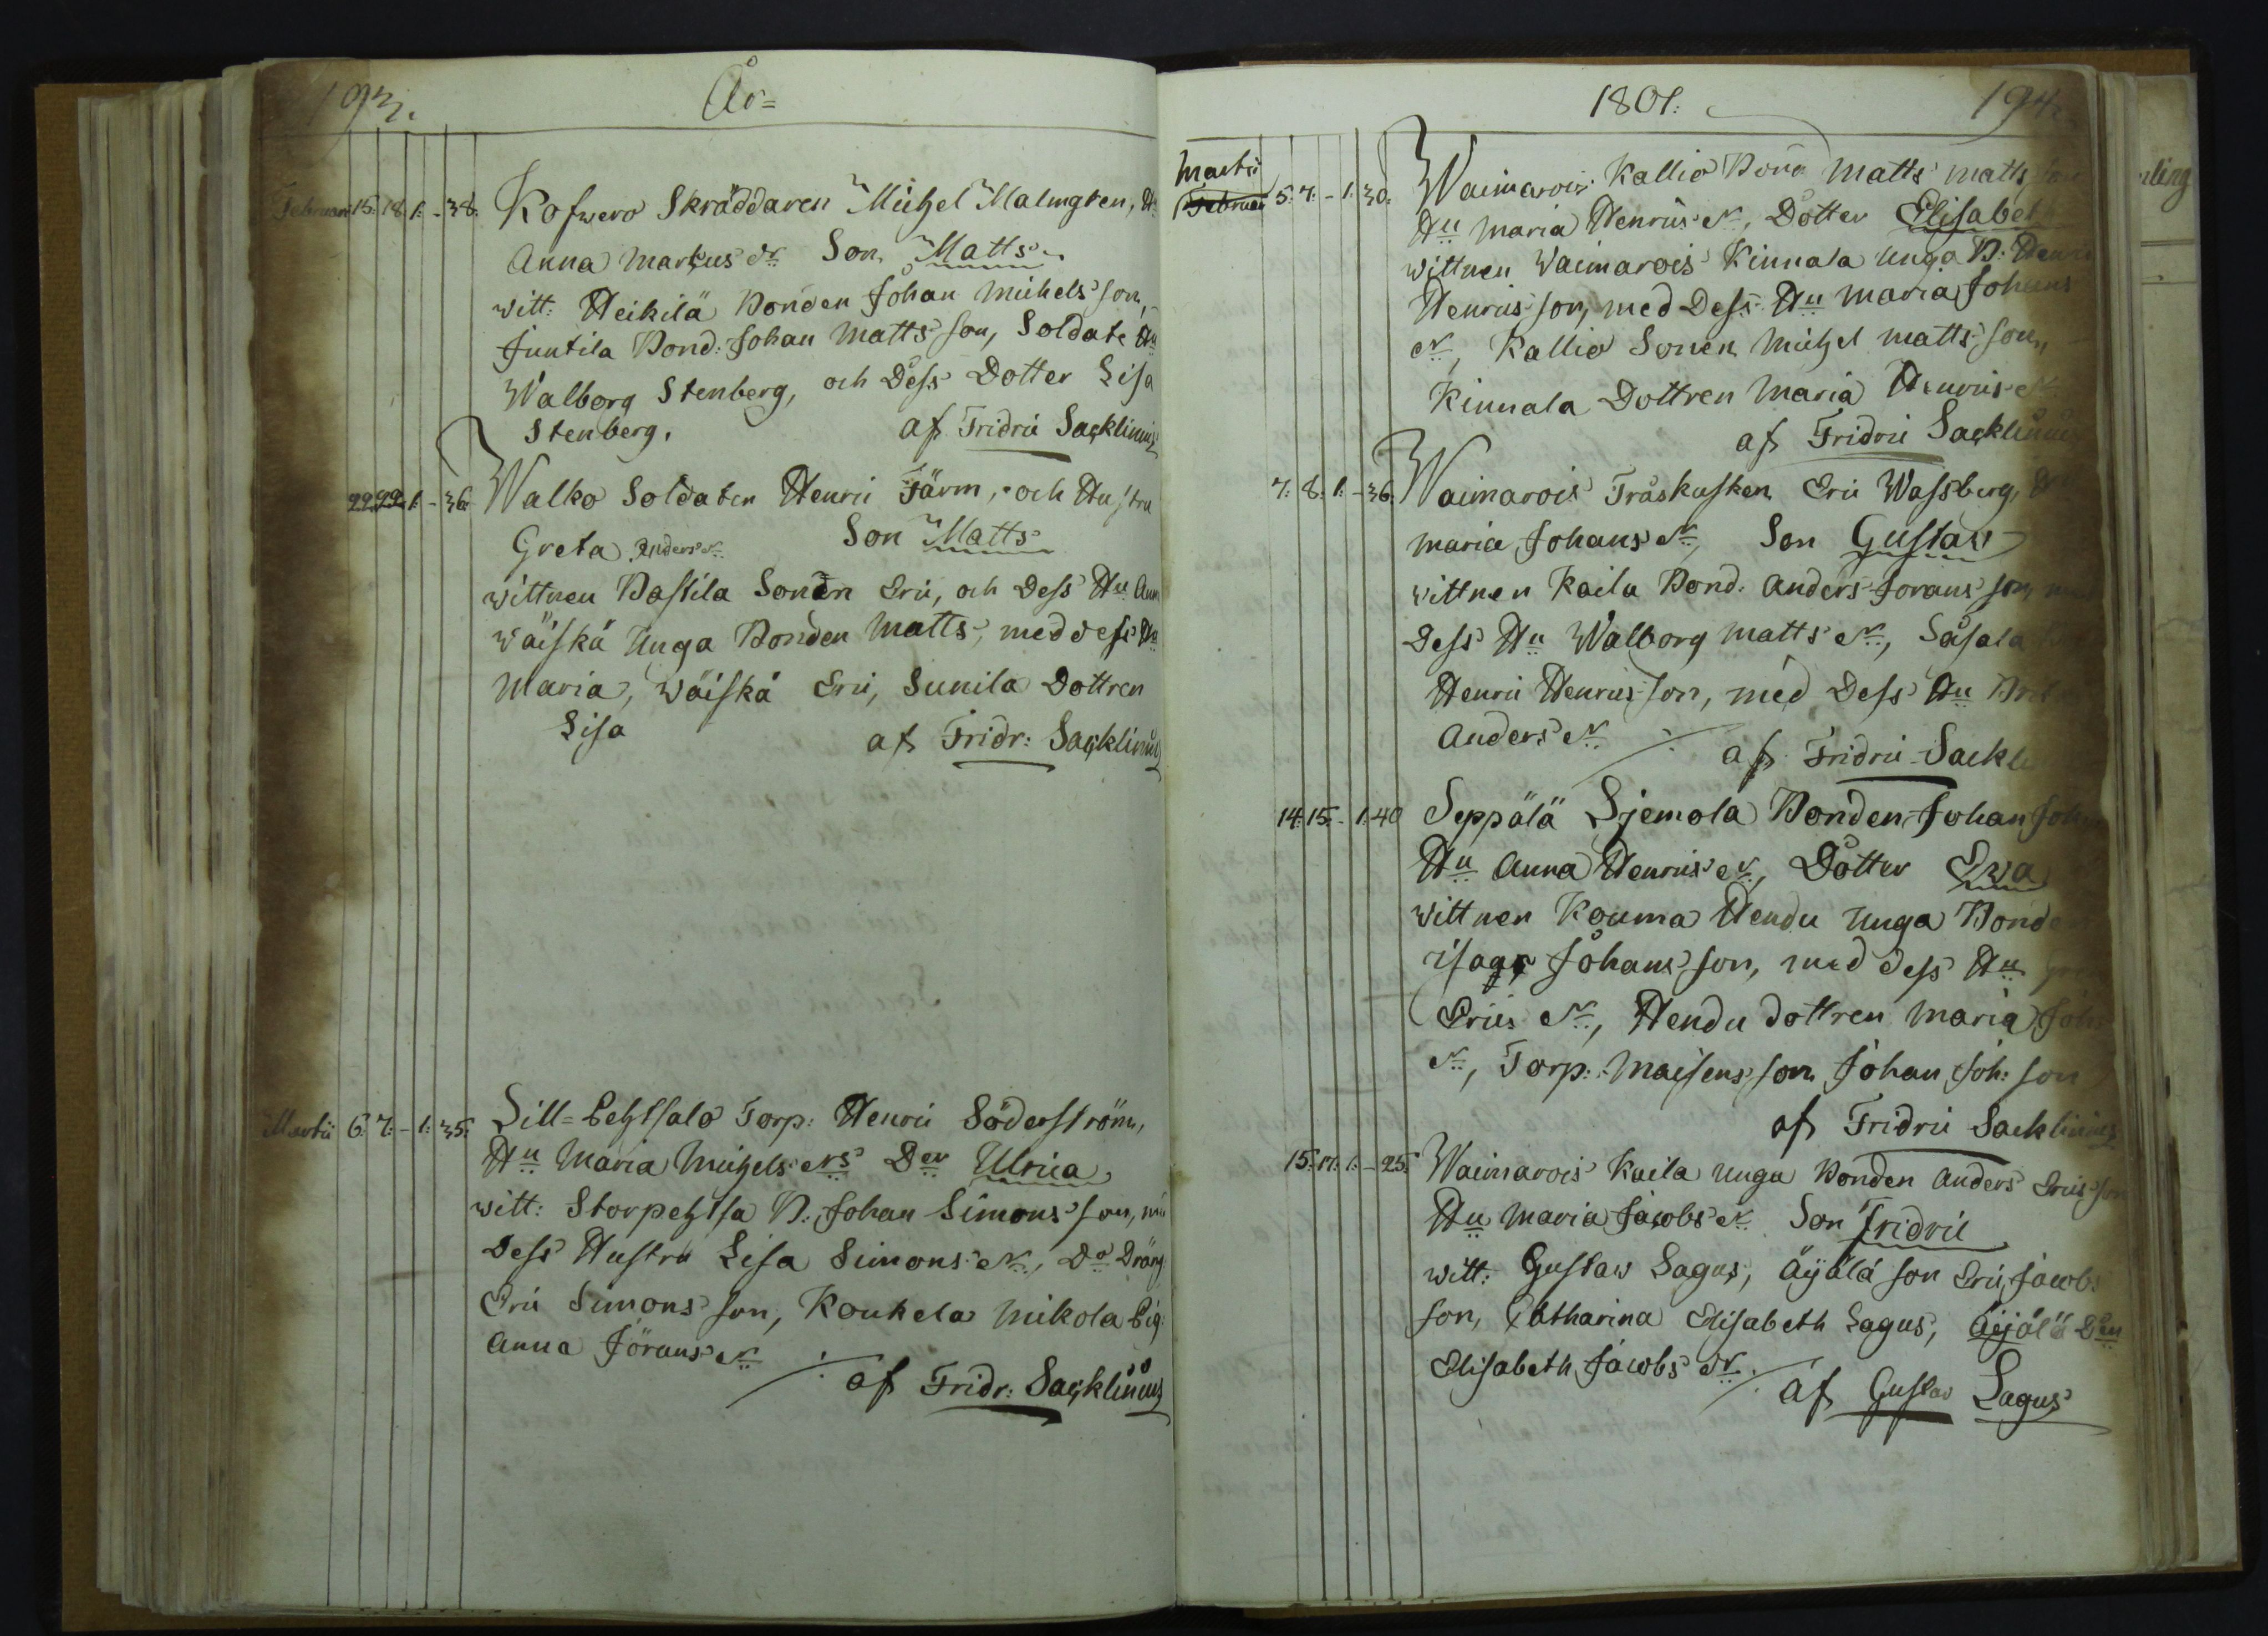 193.
År=
Februari 15. 18. 1. - 38. Kofwero Skräddaren Michel Malmgren, H:
Anna Marcus dr Son Matts
witt: Heikilä Bonden Johan Michels son,
Juntila Bond: Johan Matts son, Soldate Hu
Walborg Stenberg, och Dess Dotter Lisa
Stenberg. af Fridric Sacklinius
22. 22. 1 - 36. Walko Soldaten Henric Färm, och Hustru
Greta Anders dr Son Matts
wittnen Bastila Sonen Eric, och Dess Hu Ann
Wäiskä Unga Bonden Matts, med dess Hu
Maria, Wäiskä Eric, Sunila Dottren
Lisa af Fridr: Sacklinius
Martii 6. 7. - 1: 35. Lill=Pehtsalo Torp: Henric Söderström,
Hu Maria Michels drs Der Ulrica
witt: Storpehtsa B: Johan Simons son,
Dess Hustru Lisa Simons dr, Do Dräng
Eric Simons son, Koukela Mikola Pig:
Anna Jörans dr af Fridr: Sacklinius
1801. 194.
Martii
Februari 5. 7. - 1. 30. Waimarois Kallio Bond Matts Matts
Hu Maria Henrics dr, Dotter Elisabet
wittnen Waimarois Kinnala Unga B: Henric
Henrics son, med Dess Hu Maria Johans
dr, Kallio Sonen Michel Matts son,
Kinnala Dottren Maria Henrics dr
af Fridric Sacklinius
7. 8. 1. - 36. Waimarois Eric Wassberg,
Maria Johans dr, Son Gustav
wittnen Kaila Bond: Anders Jorans son,
Dess Hu Walborg Matts dr, Säsala
Henric Henrics son, med Dess Hu
Anders dr af Fridric Sackli
14. 15. - 1. 40 Seppälä Ljemola Bonden Johan Joh
Hu Anna Henrics dr, Dotter Ewa
wittnen Kouma Hendu Unga Bonde
Isagr Johans son, med dess Hu
Erics dr, Hendu dottren Maria Joh
dr, Torp: Maisens son Johan Joh: son
af Fridric Sacklinius
15. 17. 1. - 25. Waimarois Kaila Unga Bonden Anders Erics son
Hu Maria Jacobs dr Son Fridric
witt: Gustaw Lagus, Äyälä son Eric Jacobs
son, Catharina Elisabeth Lagus, Äijälä Den
Elisabeth Jacobs dr.
af Gustav Lagus